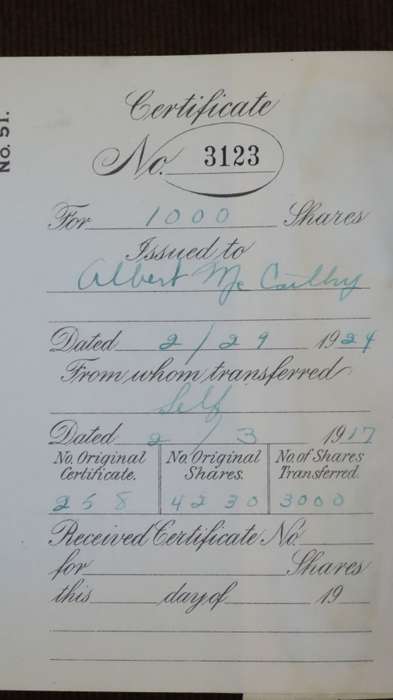 No. 51.
Certificate
No. 3123
For 1000 Shares
Issued to
Albert Mc Carthy
Dated 2/29 1924
From whom transferred
Self
Dated 2/3 1917
No. Original Certificate. No. Original Shares. No. of Shares Transferred.
258 4230 3000
Received Certificate No.
for Shares
this day of 19